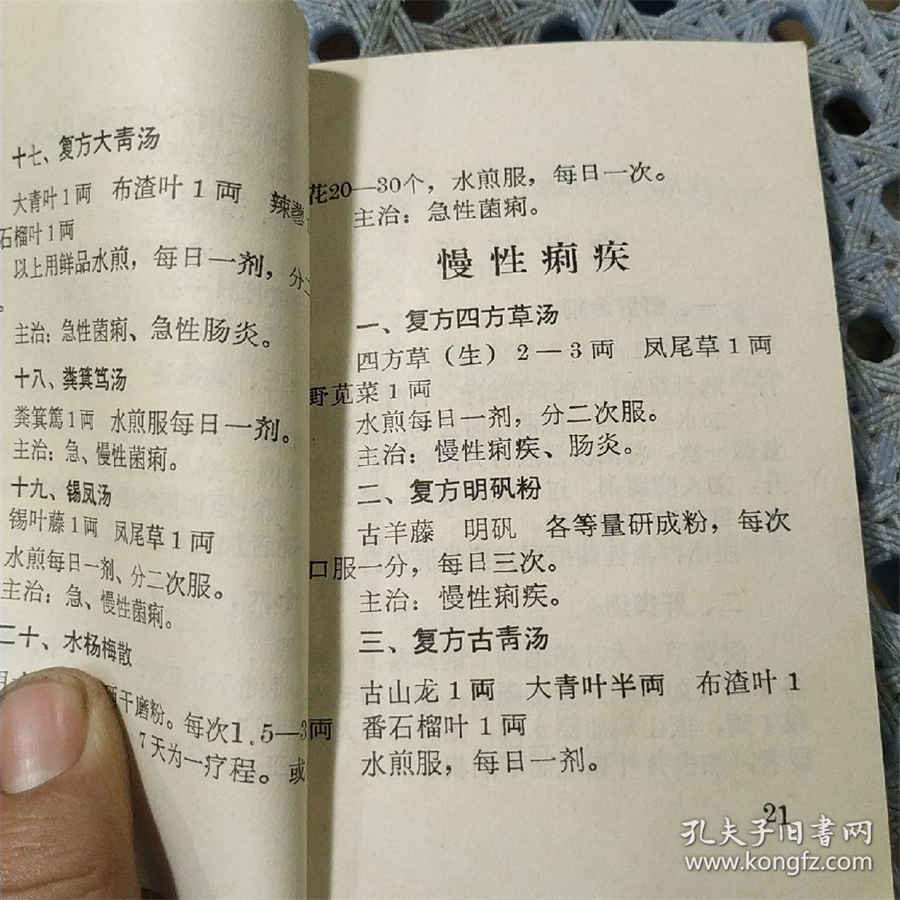 十七、复方大青汤
大青叶1両 布渣叶1両 辣
石榴叶1両
以上用鲜品水煎，每日一剂，分二
。
主治：急性菌痢、急性肠炎。
十八、粪箕笃汤
粪箕篤1両 水煎服每日一剂。
主治：急、慢性菌痢。
十九、锡凤汤
锡叶藤1両 凤尾草1両
水煎每日一剂、分二次服。
主治：急、慢性菌痢。
二十、水杨梅散
干磨粉。每次1.5—3
7天为一疗程。或
花20—30个，水煎服，每日一次。
主治：急性菌痢。
慢性痢疾
一、复方四方草汤
四方草（生）2—3両 凤尾草1両
野苋菜1両
水煎每日一剂，分二次服。
主治：慢性痢疾、肠炎。
二、复方明矾粉
古羊藤 明矾 各等量研成粉，每次
口服一分，每日三次。
主治：慢性痢疾。
三、复方古青汤
古山龙1両 大青叶半両 布渣叶1
両 番石榴叶1両
水煎服，每日一剂。
21
孔夫子旧書网
www.kongfz.com